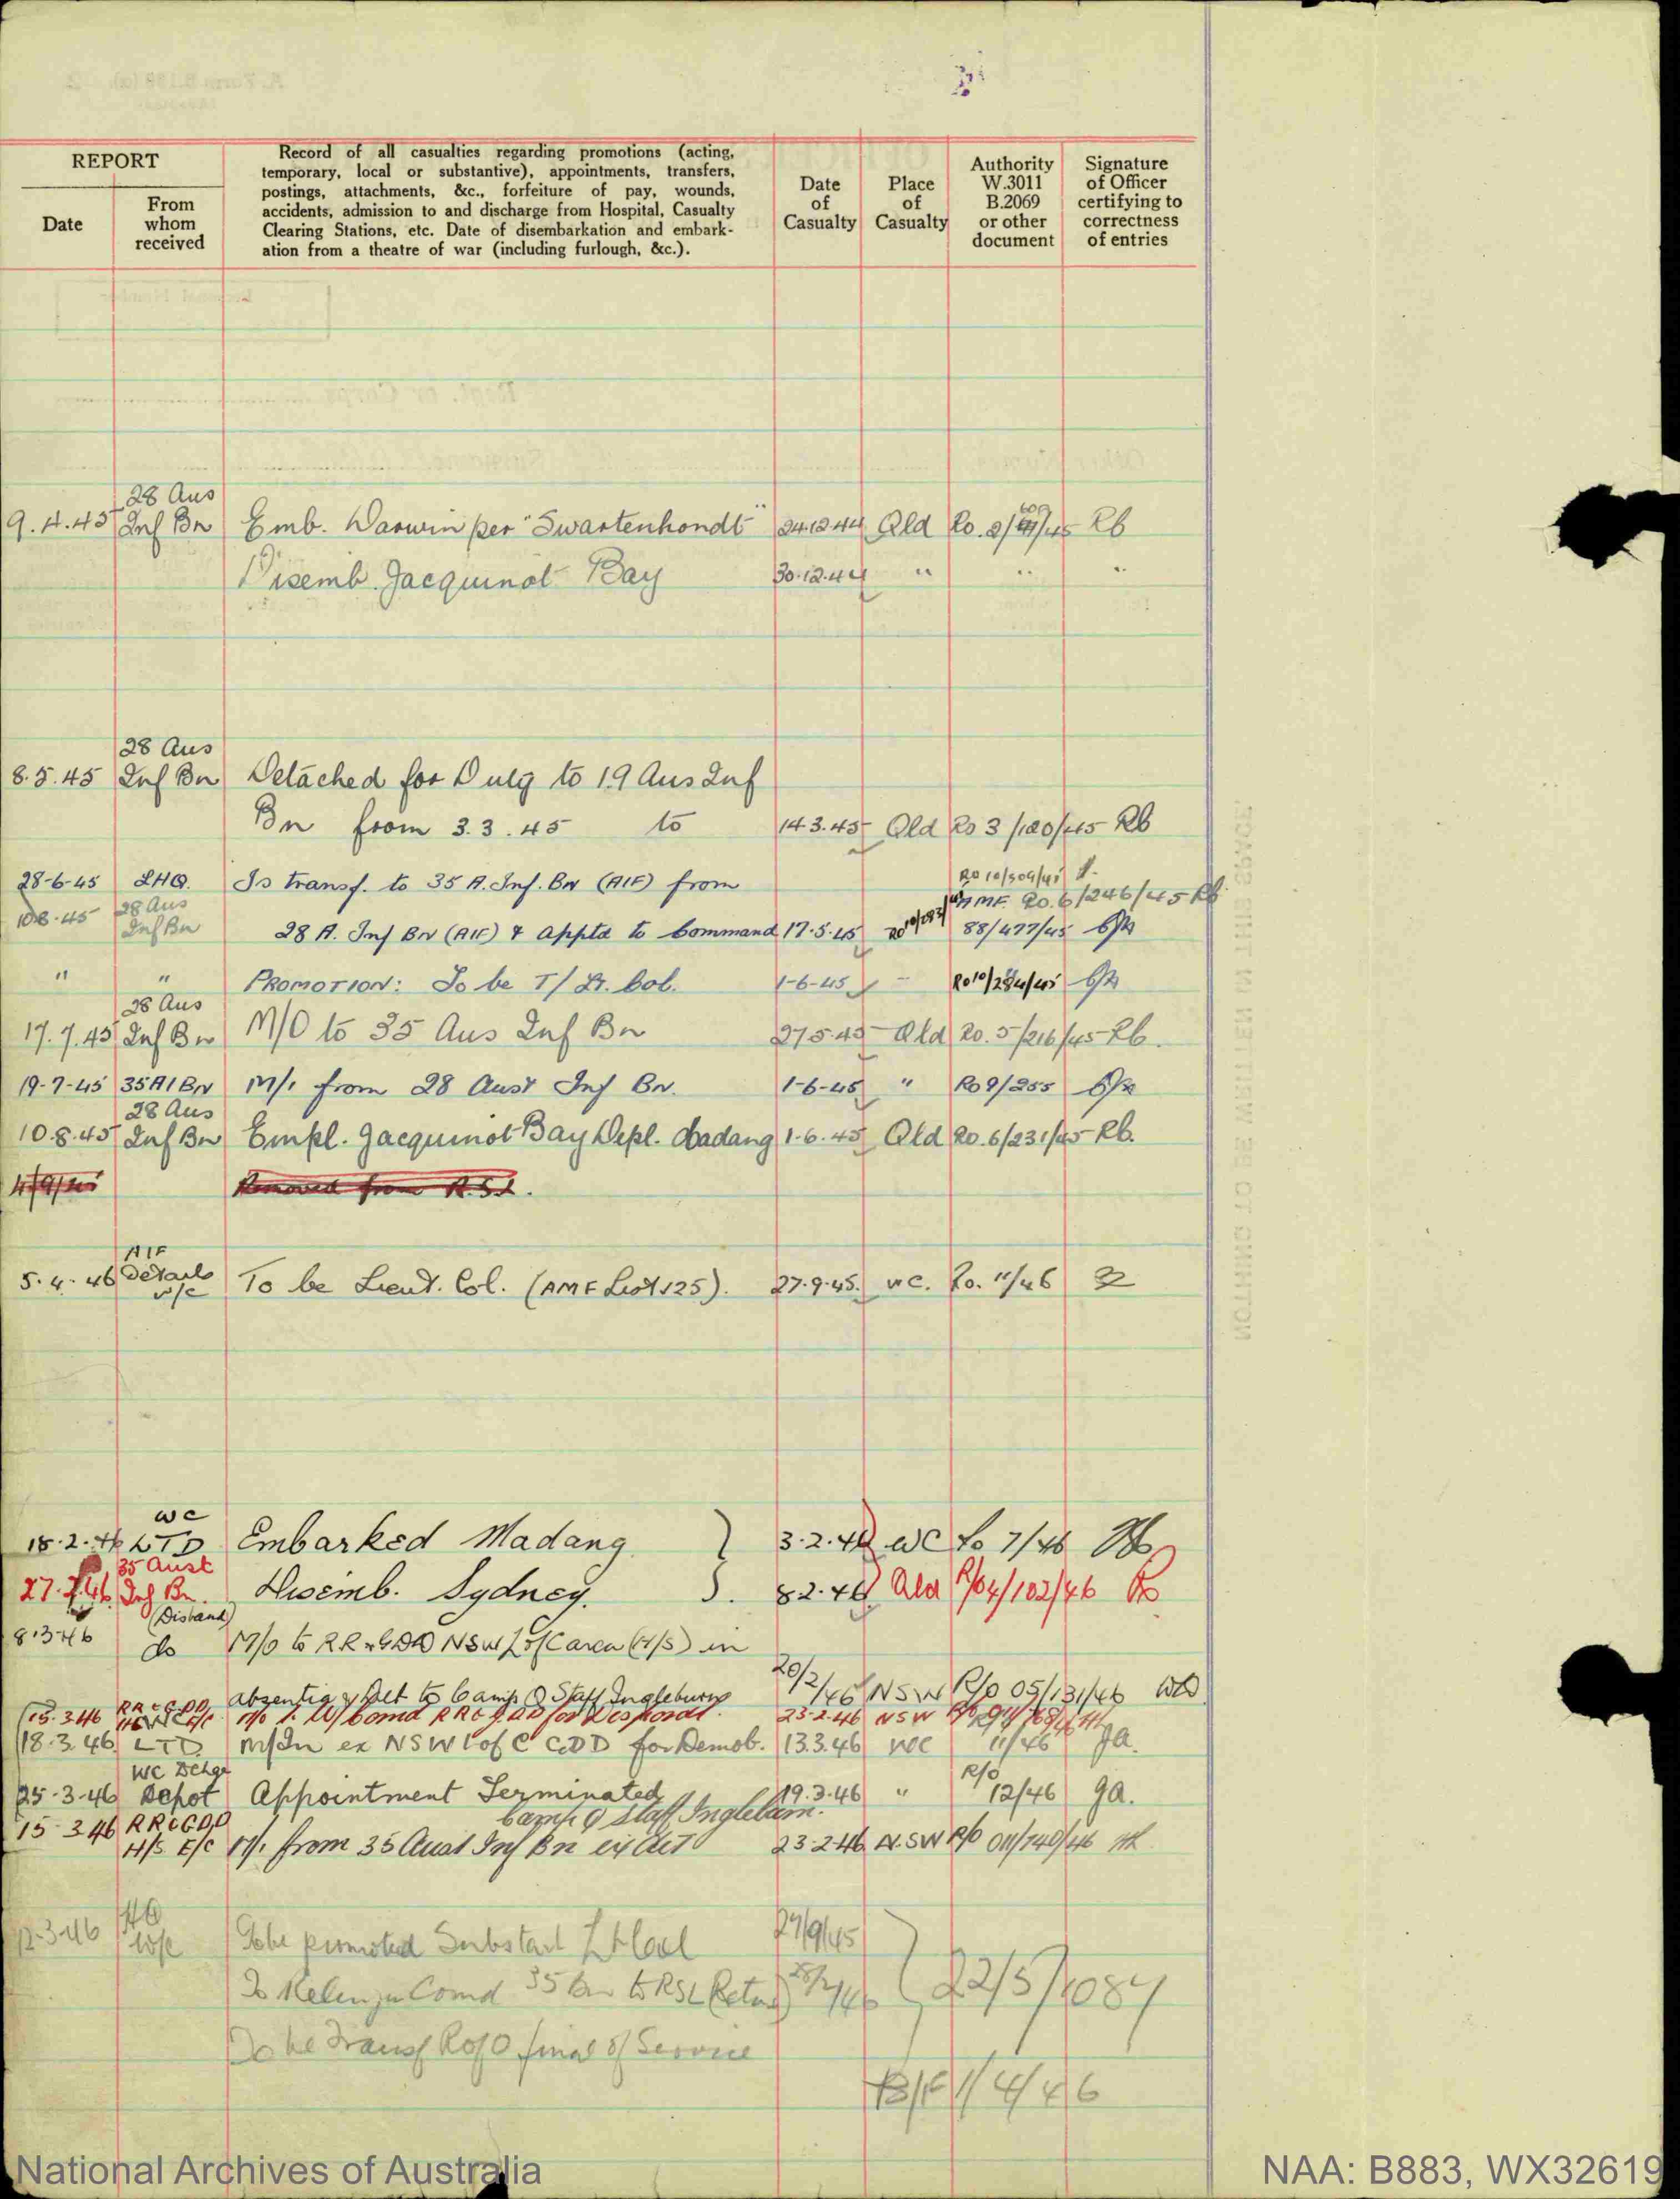 REPORT
Date
From
whom
received
Record of all casualties regarding promotions (acting,
temporary, local or substantive), appointments, transfers,
postings, attachments, &c., forfeiture of pay, wounds,
accidents, admission to and discharge from Hospital, Casualty
Clearing Stations, etc. Date of disembarkation and embark-
ation from a theatre of war (including furlough, &c.).
Date
of
Casualty
Place
of
Casualty
Authority
W.3011
B.2069
or other
document
Signature
of Officer
certifying to
correctness
of entries
28 Aus
9.4.45 Inf Bn Emb. Darwin per "Swartenhondt" 24.12.44 Qld Ro. Rb
Disemb. Jacquinot Bay 30.12.44 " " "
28 Aus
8.5.45 Inf Bn Detached for Duty to 19 Aus Inf
Bn from 3.3.45 to 14.3.45 Qld Ro 3/120/45 Rb
28-6-45 LHQ. Is transf. to 35 A. Inf. Bn (AIF) from
10.8.45 28 Aus Inf Bn RO.6/246/45 Rb
28 A. Inf Bn (AIF) & Apptd to Command 17.5.45 88/477/45
" " PROMOTION: To be T/ Lt. Col. 1-6-45 Ro10/284/45
28 Aus
17.7.45 Inf Bn M/O to 35 Aus Inf Bn 27.5.45 Qld Ro. 5/216/45 Rb.
19-7-45 35 A I Bn M/I from 28 Aust Inf Bn. 1-6-45 " Ro 9/255
28 Aus
10.8.45 Inf Bn Empl. Jacquinot Bay Depl. Madang 1.6.45 Qld Ro.6/231/45 Rb.
4/9/45 Removed from R.S.L.
AIF
5.4.46 Details w/c To be Lieut. Col. (AMF List 125). 27.9.45. W.C. Ro. 11/46
WC
18.2.46 LTD Embarked Madang } 3.2.46 WC Ro 7/46
35 Aust
27.2.46 Inf Bn. Disemb. Sydney. } 8.2.46 Qld R/04/102/46
(Disband)
8.3.46 do M/O to RR & GDD NSW L of C area (H/S) in
absentia & Det to Camp Q Staff Ingleburn 20/2/46 NSW R/O 05/131/46
15.3.46 RR & GDD 23.2.46 NSW
18.3.46 LTD M/In ex NSW L of C GDD for Demob. 13.3.46 WC 11/46 ga.
WC Dchge
25-3-46 Depot Appointment Terminated 19.3.46 " R/o 12/46 ga.
Camp Q Staff Ingleburn.
15 3 46 RR&GDD
H/S E/C M/I from 35 Aust Inf Bn 23 2 46 N.SW R/O 011/740/46
12-3-46 HQ w/c To be promoted Substant Lt Col 27/9/45
To Relinqu Comd 35 Bn to RSL 22/5/1084
To be Transf RofO
B/F 1/4/46
NOTHING IS TO BE WRITTEN IN THIS SPACE
National Archives of Australia
NAA: B883, WX32619